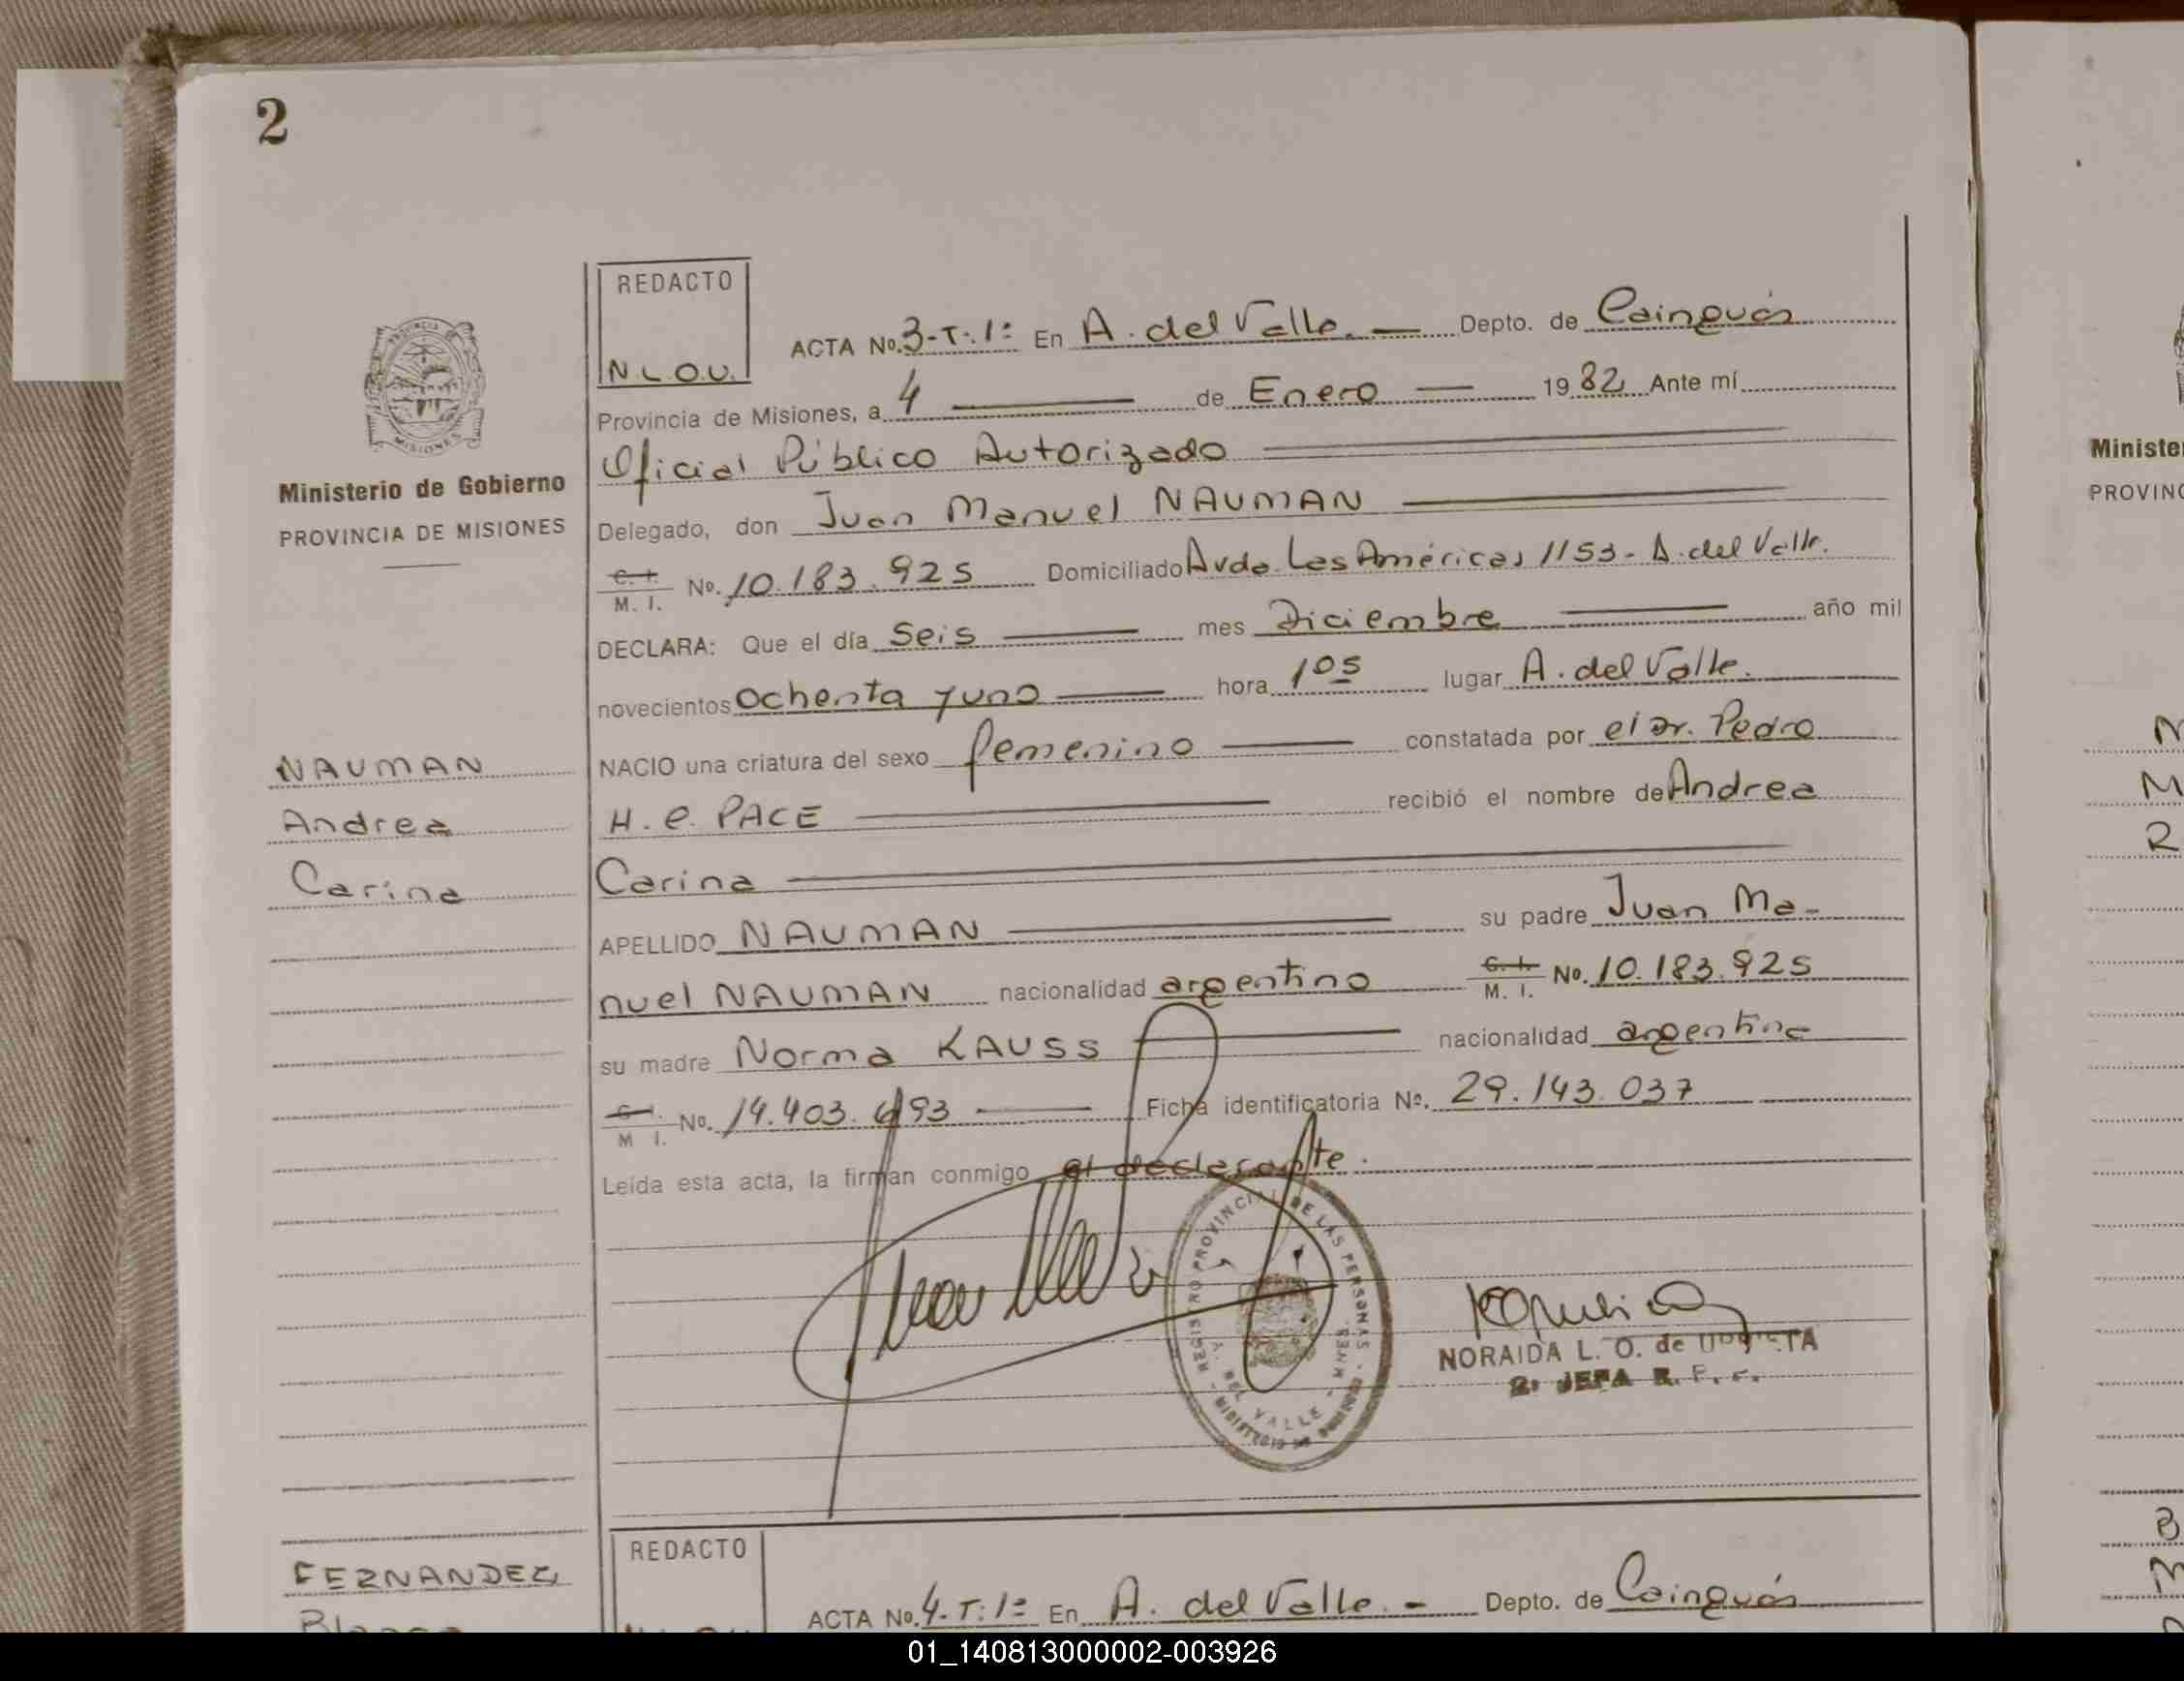 2
REDACTO
N.L.O.U.
ACTA No. 3-T:1º En A. del Valle. — Depto. de Cainguás
Provincia de Misiones, a 4 — de Enero — 1982 Ante mí
Oficial Público Autorizado
Delegado, don Juan Manuel NAUMAN
C. I.
M. I. No. 10.183.925 Domiciliado Avda. Las Américas 1153 - A. del Valle.
DECLARA: Que el día Seis — mes Diciembre — año mil
novecientos Ochenta y uno — hora 1 05 lugar A. del Valle.
NACIO una criatura del sexo femenino — constatada por el Dr. Pedro
H. C. PACE — recibió el nombre de Andrea
Carina
APELLIDO NAUMAN — su padre Juan Ma-
nuel NAUMAN nacionalidad argentino C. I.
M. I. No. 10.183.925
su madre Norma KAUSS — nacionalidad argentina
C. I.
M. I. No. 14.403. — Ficha identificatoria Nº. 29.143.037
Leída esta acta, la firman conmigo el declarante.
REGISTRO PROVINCIAL DE LAS PERSONAS
A. DEL VALLE
NORAIDA L. O. de
JEFA R. P.
Ministerio de Gobierno
PROVINCIA DE MISIONES
NAUMAN
Andrea
Carina
FERNANDEZ
Blanca
REDACTO
ACTA No. 4-T:1º En A. del Valle. - Depto. de Cainguás
Ministe
PROVINC
N
M
R
01_140813000002-003926